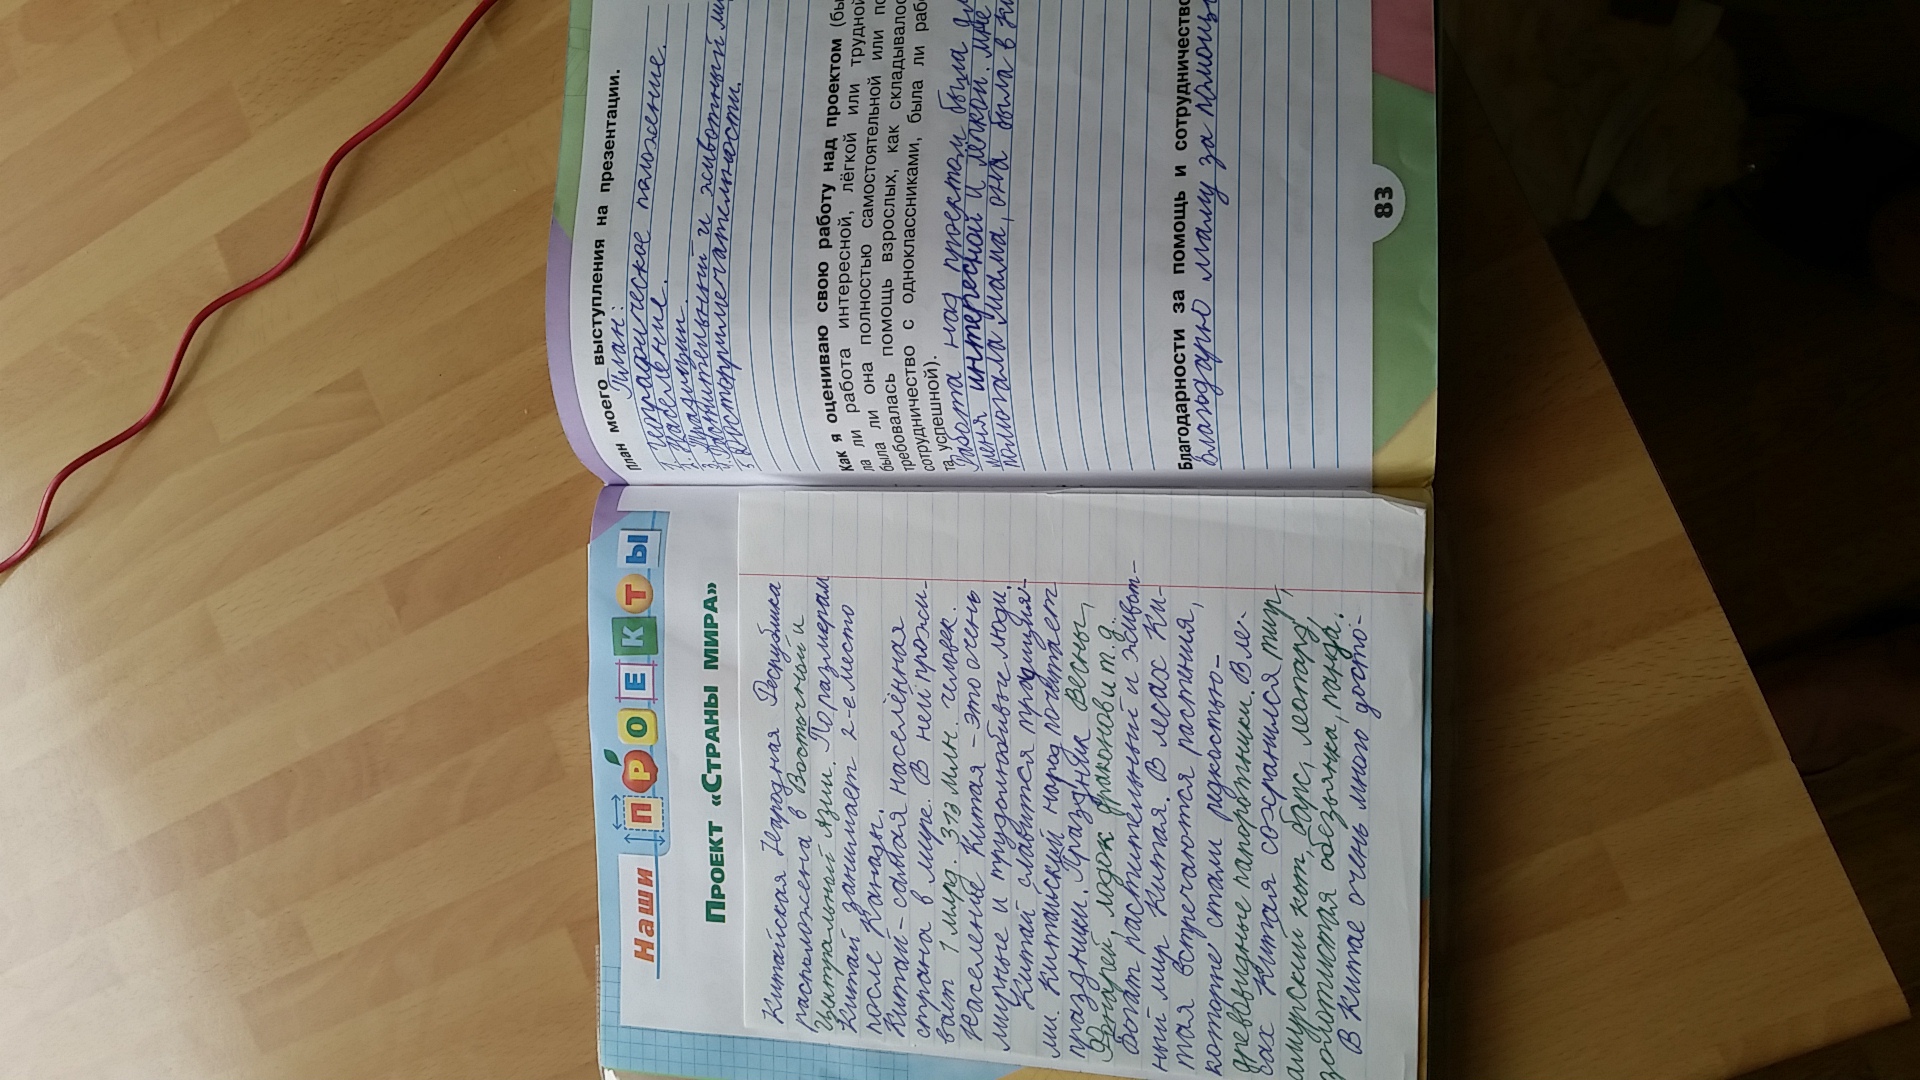 Наши ПРОЕКТЫ
ПРОЕКТ «СТРАНЫ МИРА»
Китайская Народная Республика
расположена в Восточной и
Центральной Азии. По размерам
Китай занимает 2-е место
после Канады.
Китай – самая населённая
страна в мире. В ней прожи-
вает 1 млрд. 313 млн. человек.
Население Китая – это очень
мирные и трудолюбивые люди.
Китай славится традиция-
ми. Китайский народ почитает
праздники. Праздник Весны,
Фонарей, лодок драконов и т.д..
Богат растительный и живот-
ный мир Китая. В лесах Ки-
тая встречаются растения,
которые стали редкостью–
древовидные папоротники. В ле-
сах Китая сохранился тигр,
амурский кот, барс, леопард,
золотистая обезьянка, панда.
В Китае очень много досто-
План моего выступления на презентации.
План:
1. Географическое положение.
2. Население.
3. Традиции.
4. Растительный и животный ми
5 Достопримечательности.
Как я оцениваю свою работу над проектом (бы
ла ли работа интересной, лёгкой или трудной
была ли она полностью самостоятельной или по
требовалась помощь взрослых, как складывалос
сотрудничество с одноклассниками, была ли рабо
та успешной).
Работа над проектом была дл
меня интересной и лёгкой. мне
помогала мама, она была в Ки
Благодарности за помощь и сотрудничество
Благодарю маму за помощь
83